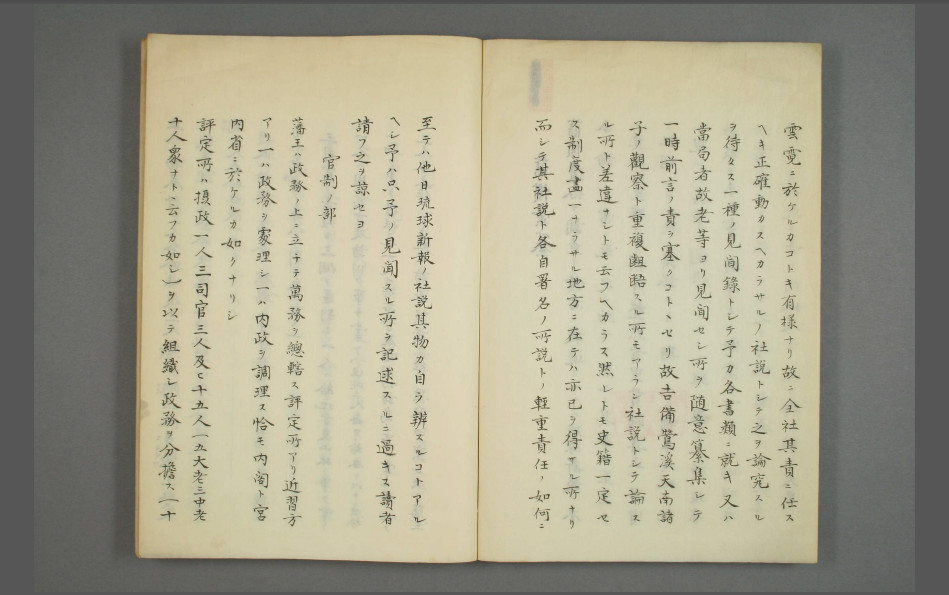 雲霓ニ於ケルカコトキ有様ナリ故ニ全社其責ニ任ス
ヘキ正確動カスヘカラサルノ社説トシテ之ヲ論究スル
ヲ待タス一種ノ見聞録トシテ予カ各書類ニ就キ又ハ
當局者故老等ヨリ見聞セシ所ヲ随意纂集シテ
一時前言ノ責ヲ塞クコトヽセリ故吉備鶯溪天南諸
子ノ觀察ト重複齟齬スル所モアラン社説トシテ論ス
ル所ト差違ナシトモ云フヘカラス然レトモ史籍一定セ
ス制度畫一ナラサル地方ニ在テハ亦已ヲ得サル所ナリ
而シテ其社説ト各自署名ノ所説トノ軽重責任ノ如何ニ
至テハ他日琉球新報ノ社説其物カ自ラ辨スルコトアル
ヘシ予ハ只予ノ見聞スル所ヲ記述スルニ過キス讀者
請フ之ヲ諒セヨ
官制ノ部
藩王ハ政務ノ上ニ立テテ萬務ヲ總轄ス評定所アリ近習方
アリ一ハ政務ヲ處理シ一ハ内政ヲ調理ス恰モ内閣ト宮
内省ニ於ケルカ如クナリシ
評定所ハ摂政一人三司官三人及ヒ十五人(五大老三中老
十人衆ナトヽ云フカ如シ)ヲ以テ組織シ政務ヲ分擔ス(一十